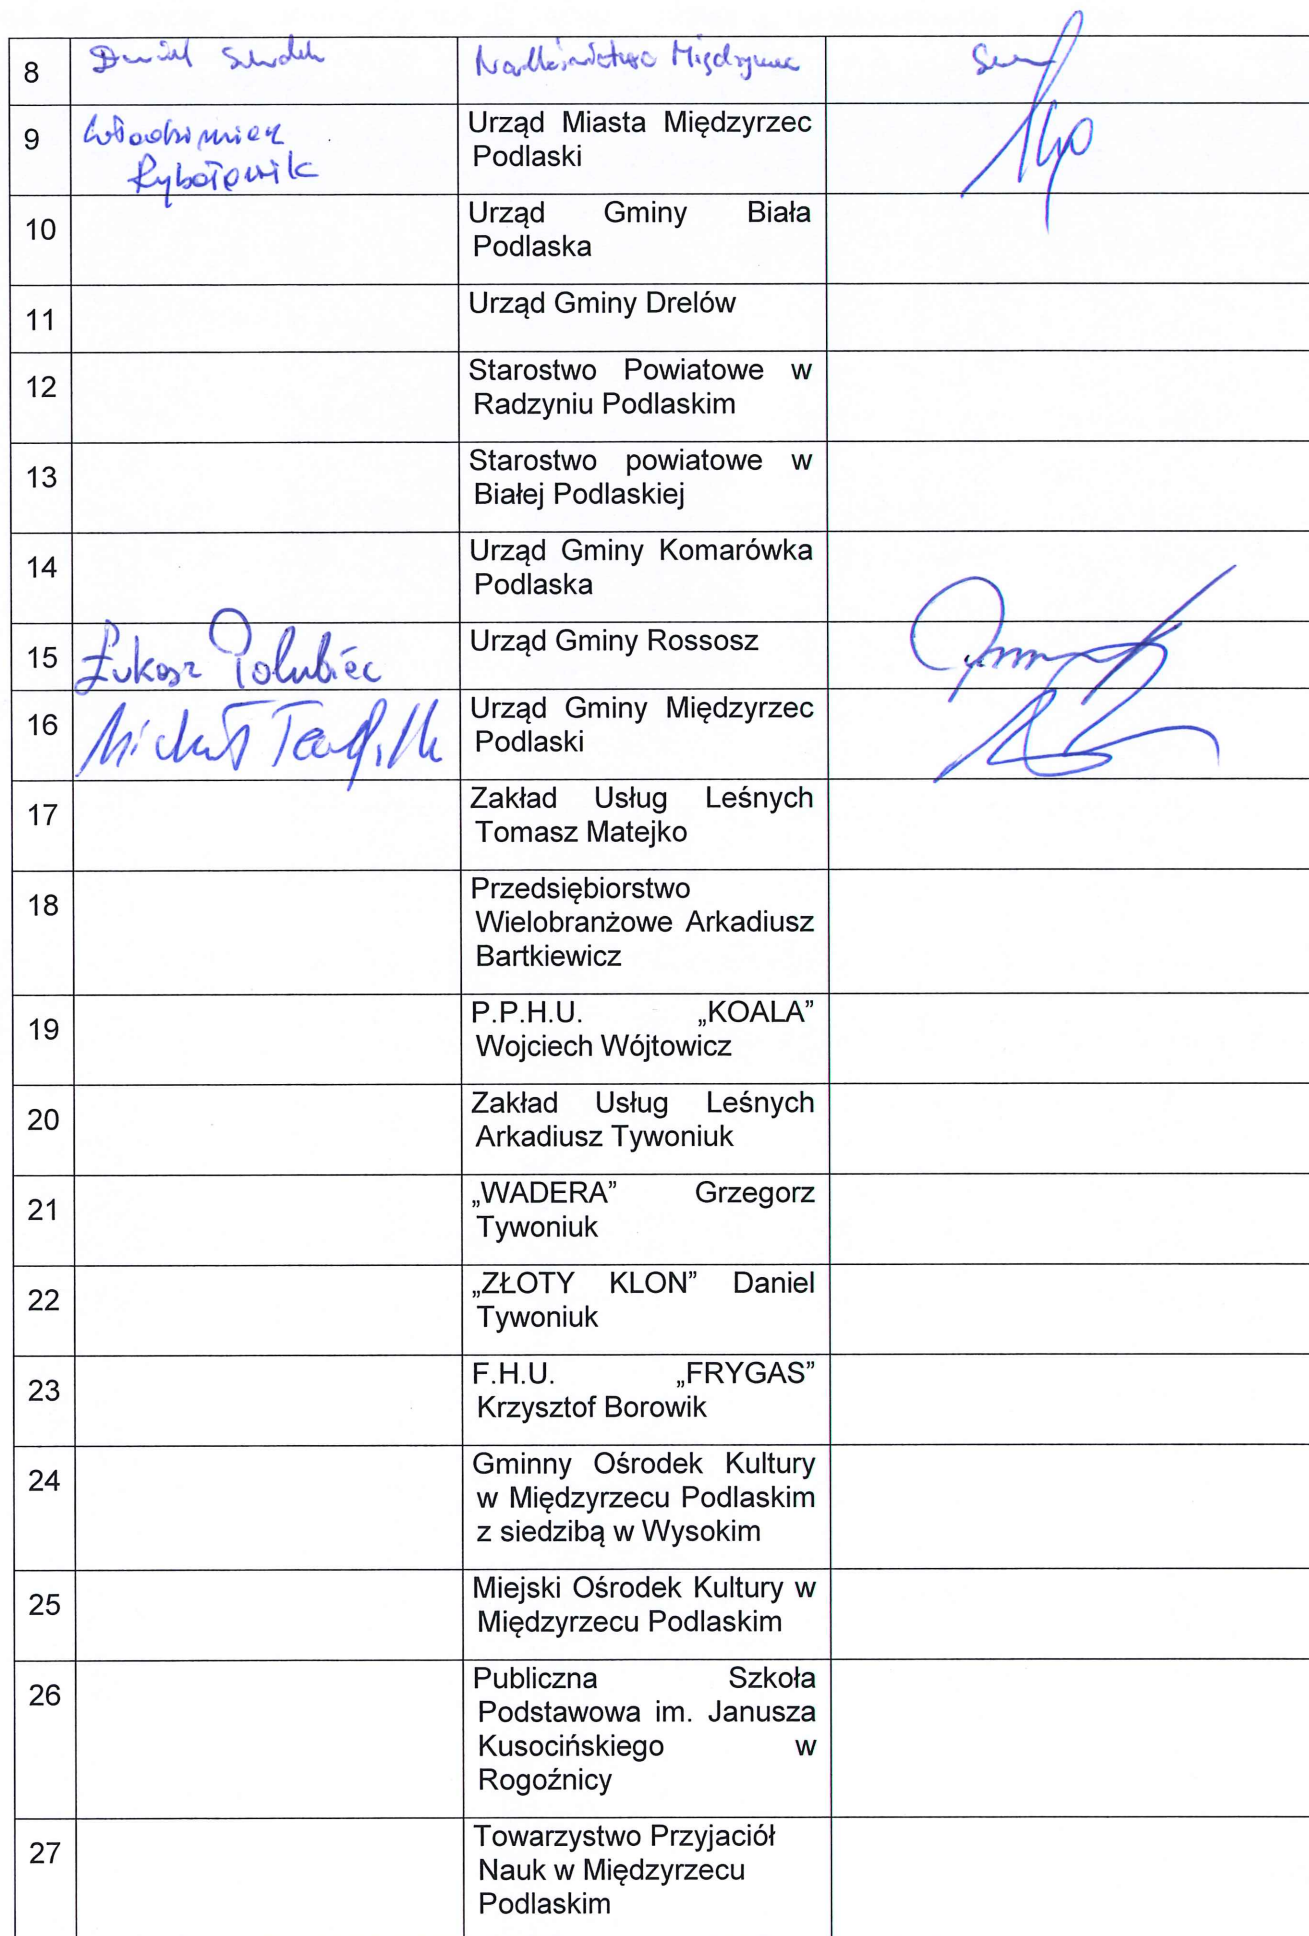 8 Daniel Nadleśnictwo Międzyrzec
9 Włodzimierz
Urząd Miasta Międzyrzec
Podlaski
10 Urząd Gminy Biała
Podlaska
11 Urząd Gminy Drelów
12 Starostwo Powiatowe w
Radzyniu Podlaskim
13 Starostwo powiatowe w
Białej Podlaskiej
14 Urząd Gminy Komarówka
Podlaska
15 Łukasz Połubiec Urząd Gminy Rossosz
16 Michał Urząd Gminy Międzyrzec
Podlaski
17 Zakład Usług Leśnych
Tomasz Matejko
18 Przedsiębiorstwo
Wielobranżowe Arkadiusz
Bartkiewicz
19 P.P.H.U. „KOALA”
Wojciech Wójtowicz
20 Zakład Usług Leśnych
Arkadiusz Tywoniuk
21 „WADERA” Grzegorz
Tywoniuk
22 „ZŁOTY KLON” Daniel
Tywoniuk
23 F.H.U. „FRYGAS”
Krzysztof Borowik
24 Gminny Ośrodek Kultury
w Międzyrzecu Podlaskim
z siedzibą w Wysokim
25 Miejski Ośrodek Kultury w
Międzyrzecu Podlaskim
26 Publiczna Szkoła
Podstawowa im. Janusza
Kusocińskiego w
Rogoźnicy
27 Towarzystwo Przyjaciół
Nauk w Międzyrzecu
Podlaskim